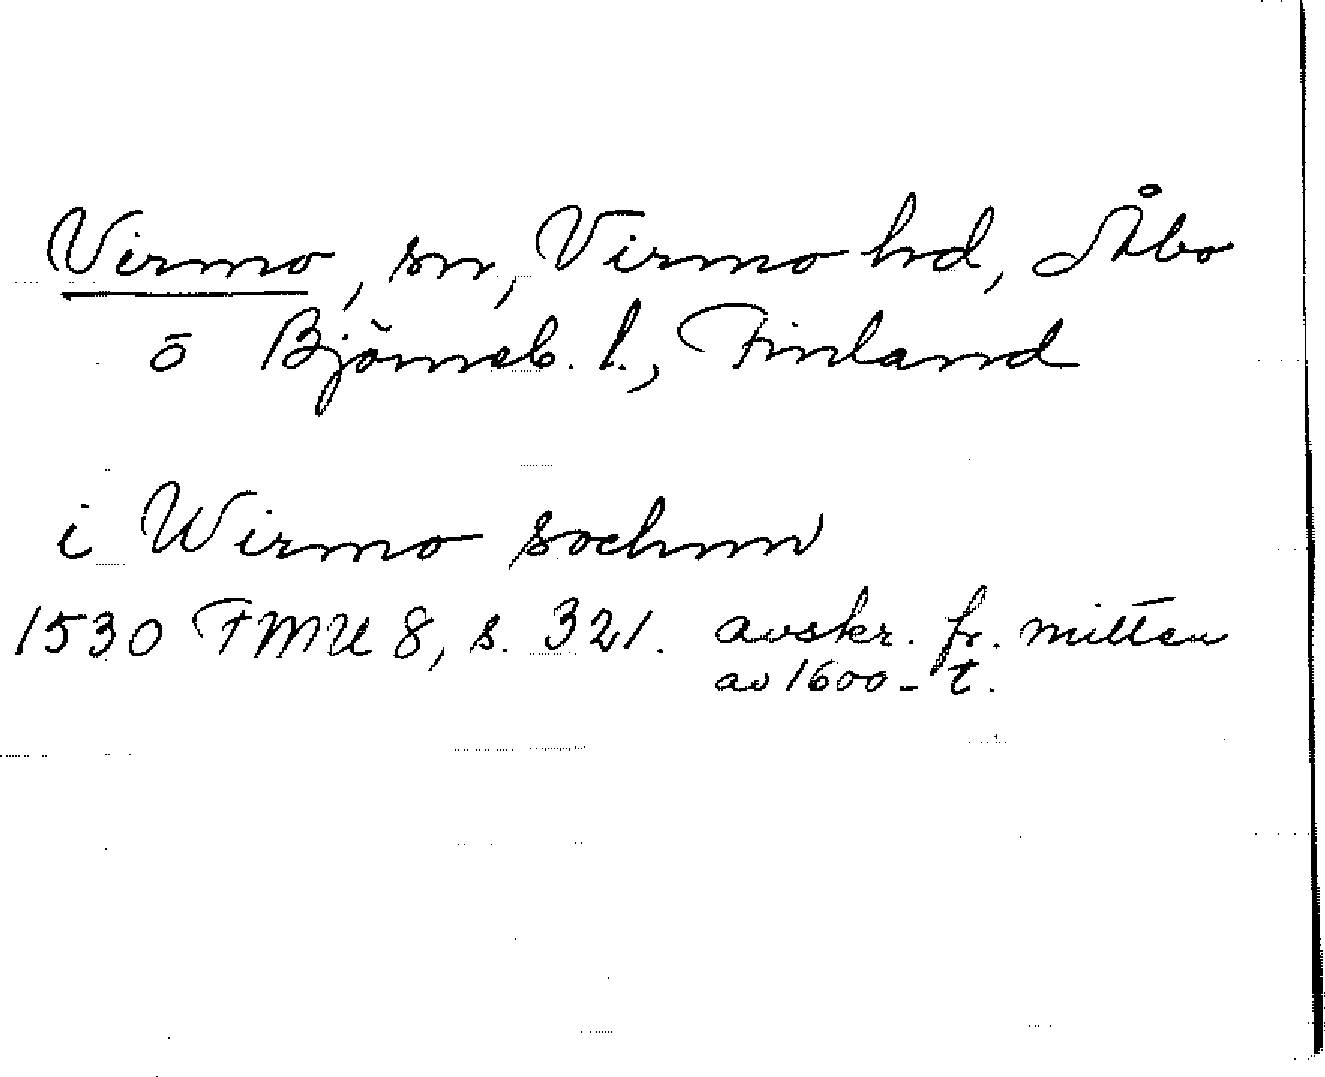 Virmo, sn, Virmo hd, Åbo
o Björneb. l., Finland
i Wirmo sochnn
1530 FMU 8, s. 321. avskr. fr. mitten
av 1600-t.